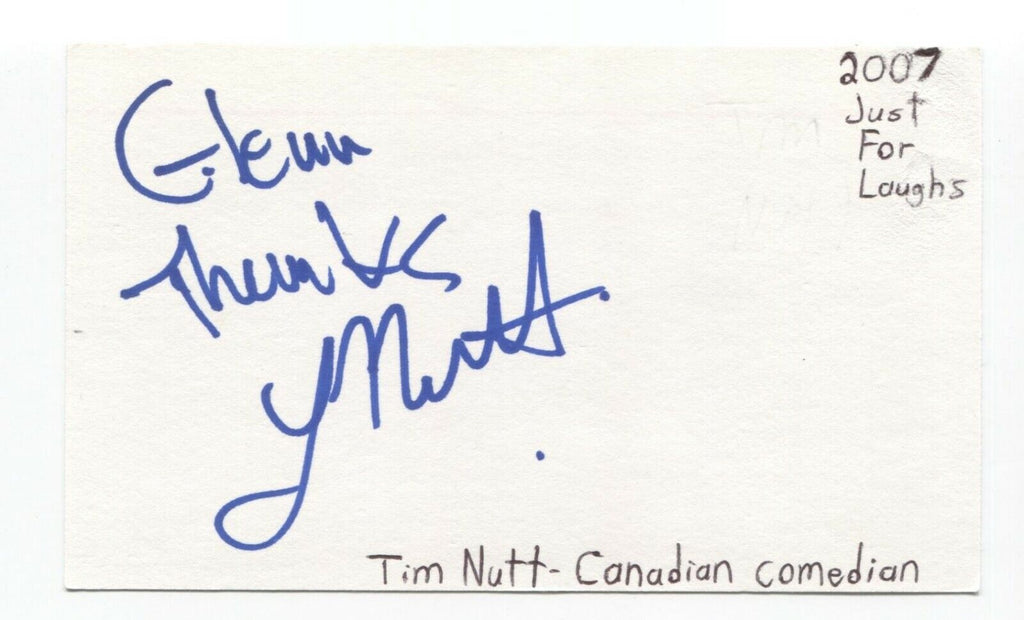 Glenn
Thanks
T Nutt
2007
Just
For
Laughs
Tim Nutt - Canadian comedian